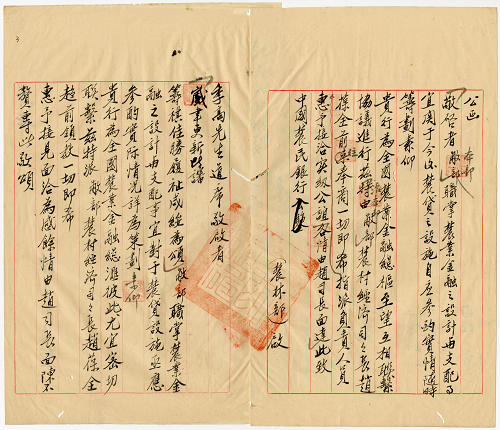 公函
敬啟者敝部職掌農業金融之設計與支配事
本部
宜關于今後農貸之設施自應參酌實情隨時
籌劃素仰
貴行為全國農業金融總樞至望互相聯繫
協議進行茲擇由敝部農村經濟司司長趙
葆全前來奉商一切即希指派負責人員
惠予接洽實級公誼各情由趙司長面達此致
中國農民銀行
農林部 啟
季高先生道席敬啟者
籌祺佳勝履祉咸綏為頌敝部職掌農業金
融之設計與支配事宜對于農貸設施亟應
參酌實際情況詳為策劃素仰
貴行為全國農業金融總滙彼此尤宜密切
聯繫茲特派敝部農村經濟司司長趙葆全
趨前領教一切即希
惠予接見面洽為感餘情由趙司長面陳不
贅專此敬頌